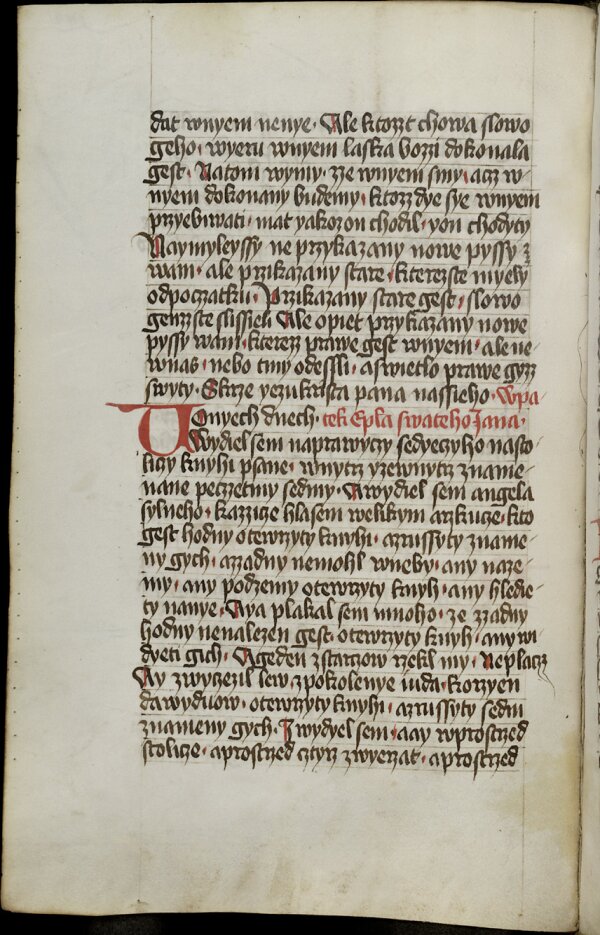 dat wnyem nenye· Ale ktozt chowa slowo
geho· wyeru wnyem laska bozzi dokonala
gest· Natom wymy· zze wnyem smy· acz w-
nyem dokonany budemy· ktozz dye sye wnyem
przyebiwati· mat yakoz on chodil· yon chodyty
Naymyleyssy ne przykazany nowe pyssy z
wam· ale przikazany stare· kterezste myely
odpoczatku· Przikazany stare gest· slowo
genzste slisseli Ale opiet przykazany nowe
pyssy wam· kterezz prawe gest wnyem· ale ne-
wnas· nebo tmy odessli· aswietlo prawe gyzz
swyty· Skrze yezukrista pana nassieho· Wpa-
Tonyech dnech· tek Epla swateho Jana·
Wydiel sem naprawyczy sedyeczyho nasto-
liczy knyhi psane· wnytrz yzewnytrz zname-
nane peczetmy sedmy· Awydiel sem angela
sylneho· kazzicze hlasem welikym arzkucze· kto
gest hodny otewrzyty knyhi· azrussyty zname-
ny gych· azzadny nemohl wneby· any naze-
my· any podzemy otewrzyty knyh· any hledie-
ty nanye· Aya plakal sem mnoho· ze zzadny
hodny nenalezen gest· otewrzyty knyh· any wi
dyeti gich· Ageden zstarzow rzekl my· Neplacz
Ay zwyczezil lew· zpokolenye iuda· korzyen
dawyduow· otewrzyty knyhi· azrussyty sedm
znameny gych· I wydyel sem· aay wprostrzed
stolicze· aprostrzed cztyrz zwyerzat· aprostrzed